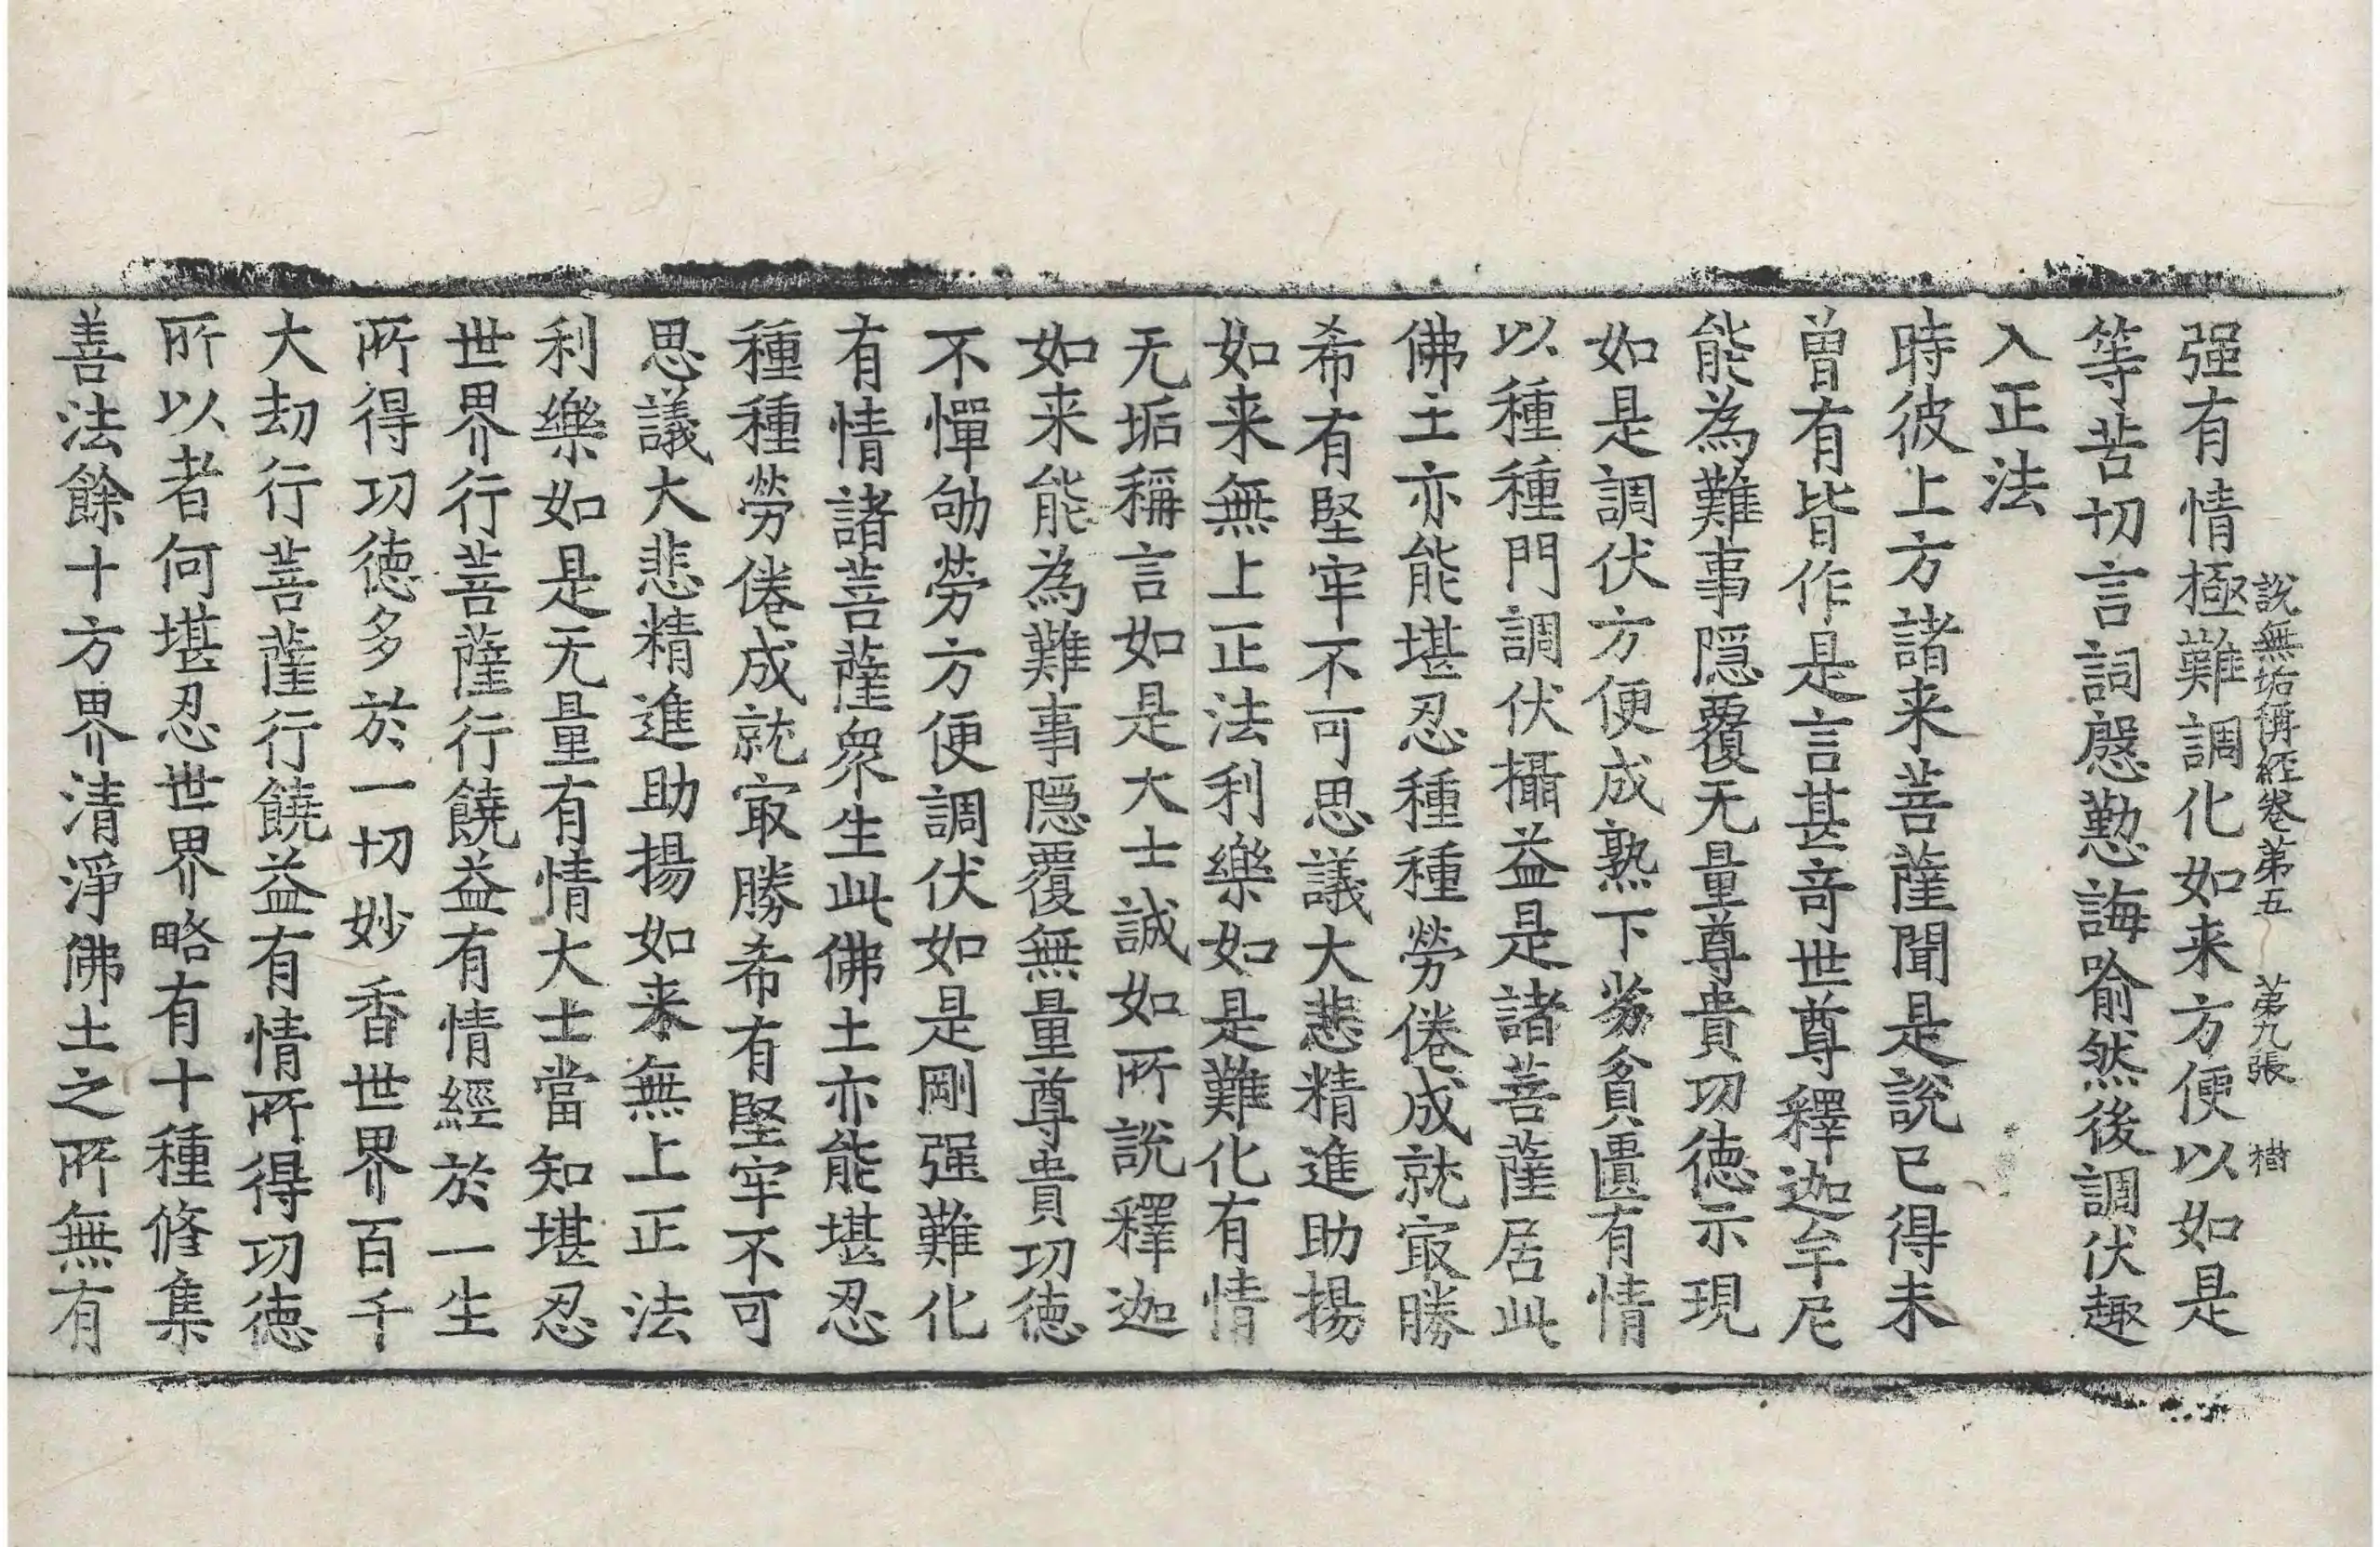 說無垢稱經卷第五　第九張　樹
强有情極難調化如来方便以如是
等苦切言詞慇懃誨喻然後調伏趣
入正法
時彼上方諸来菩薩聞是說已得未
曾有皆作是言甚奇世尊釋迦牟尼
能為難事隱覆无量尊貴功德示現
如是調伏方便成熟下劣貧匱有情
以種種門調伏攝益是諸菩薩居此
佛土亦能堪忍種種勞倦成就㝡勝
希有堅牢不可思議大悲精進助揚
如来無上正法利樂如是難化有情
无垢稱言如是大士誠如所說釋迦
如来能為難事隱覆無量尊貴功德
不憚劬勞方便調伏如是剛强難化
有情諸菩薩衆生此佛土亦能堪忍
種種勞倦成就㝡勝希有堅牢不可
思議大悲精進助揚如来無上正法
利樂如是无量有情大士當知堪忍
世界行菩薩行饒益有情經於一生
所得功德多於一切妙香世界百千
大劫行菩薩行饒益有情所得功德
所以者何堪忍世界略有十種修集
善法餘十方界清淨佛土之所無有